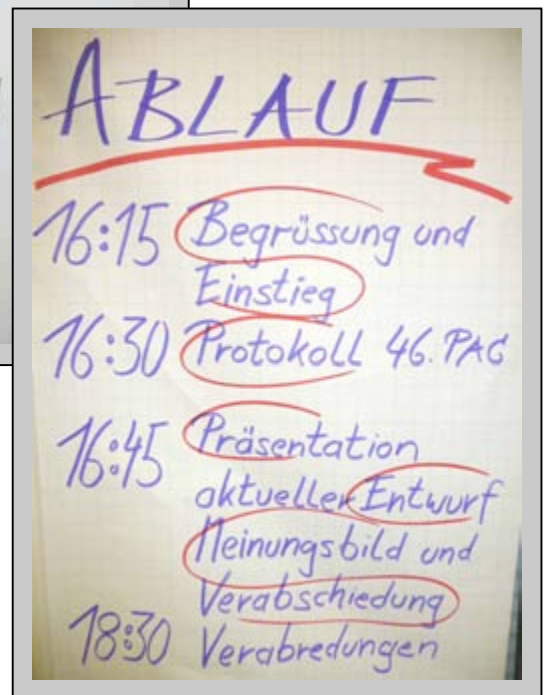 ABLAUF
16:15 Begrüssung und
Einstieg
16:30 Protokoll 46. PAG
16:45 Präsentation
aktueller Entwurf
Meinungsbild und
Verabschiedung
18:30 Verabredungen